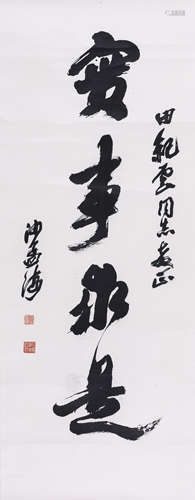 实事求是
田纪云同志教正
沙孟海